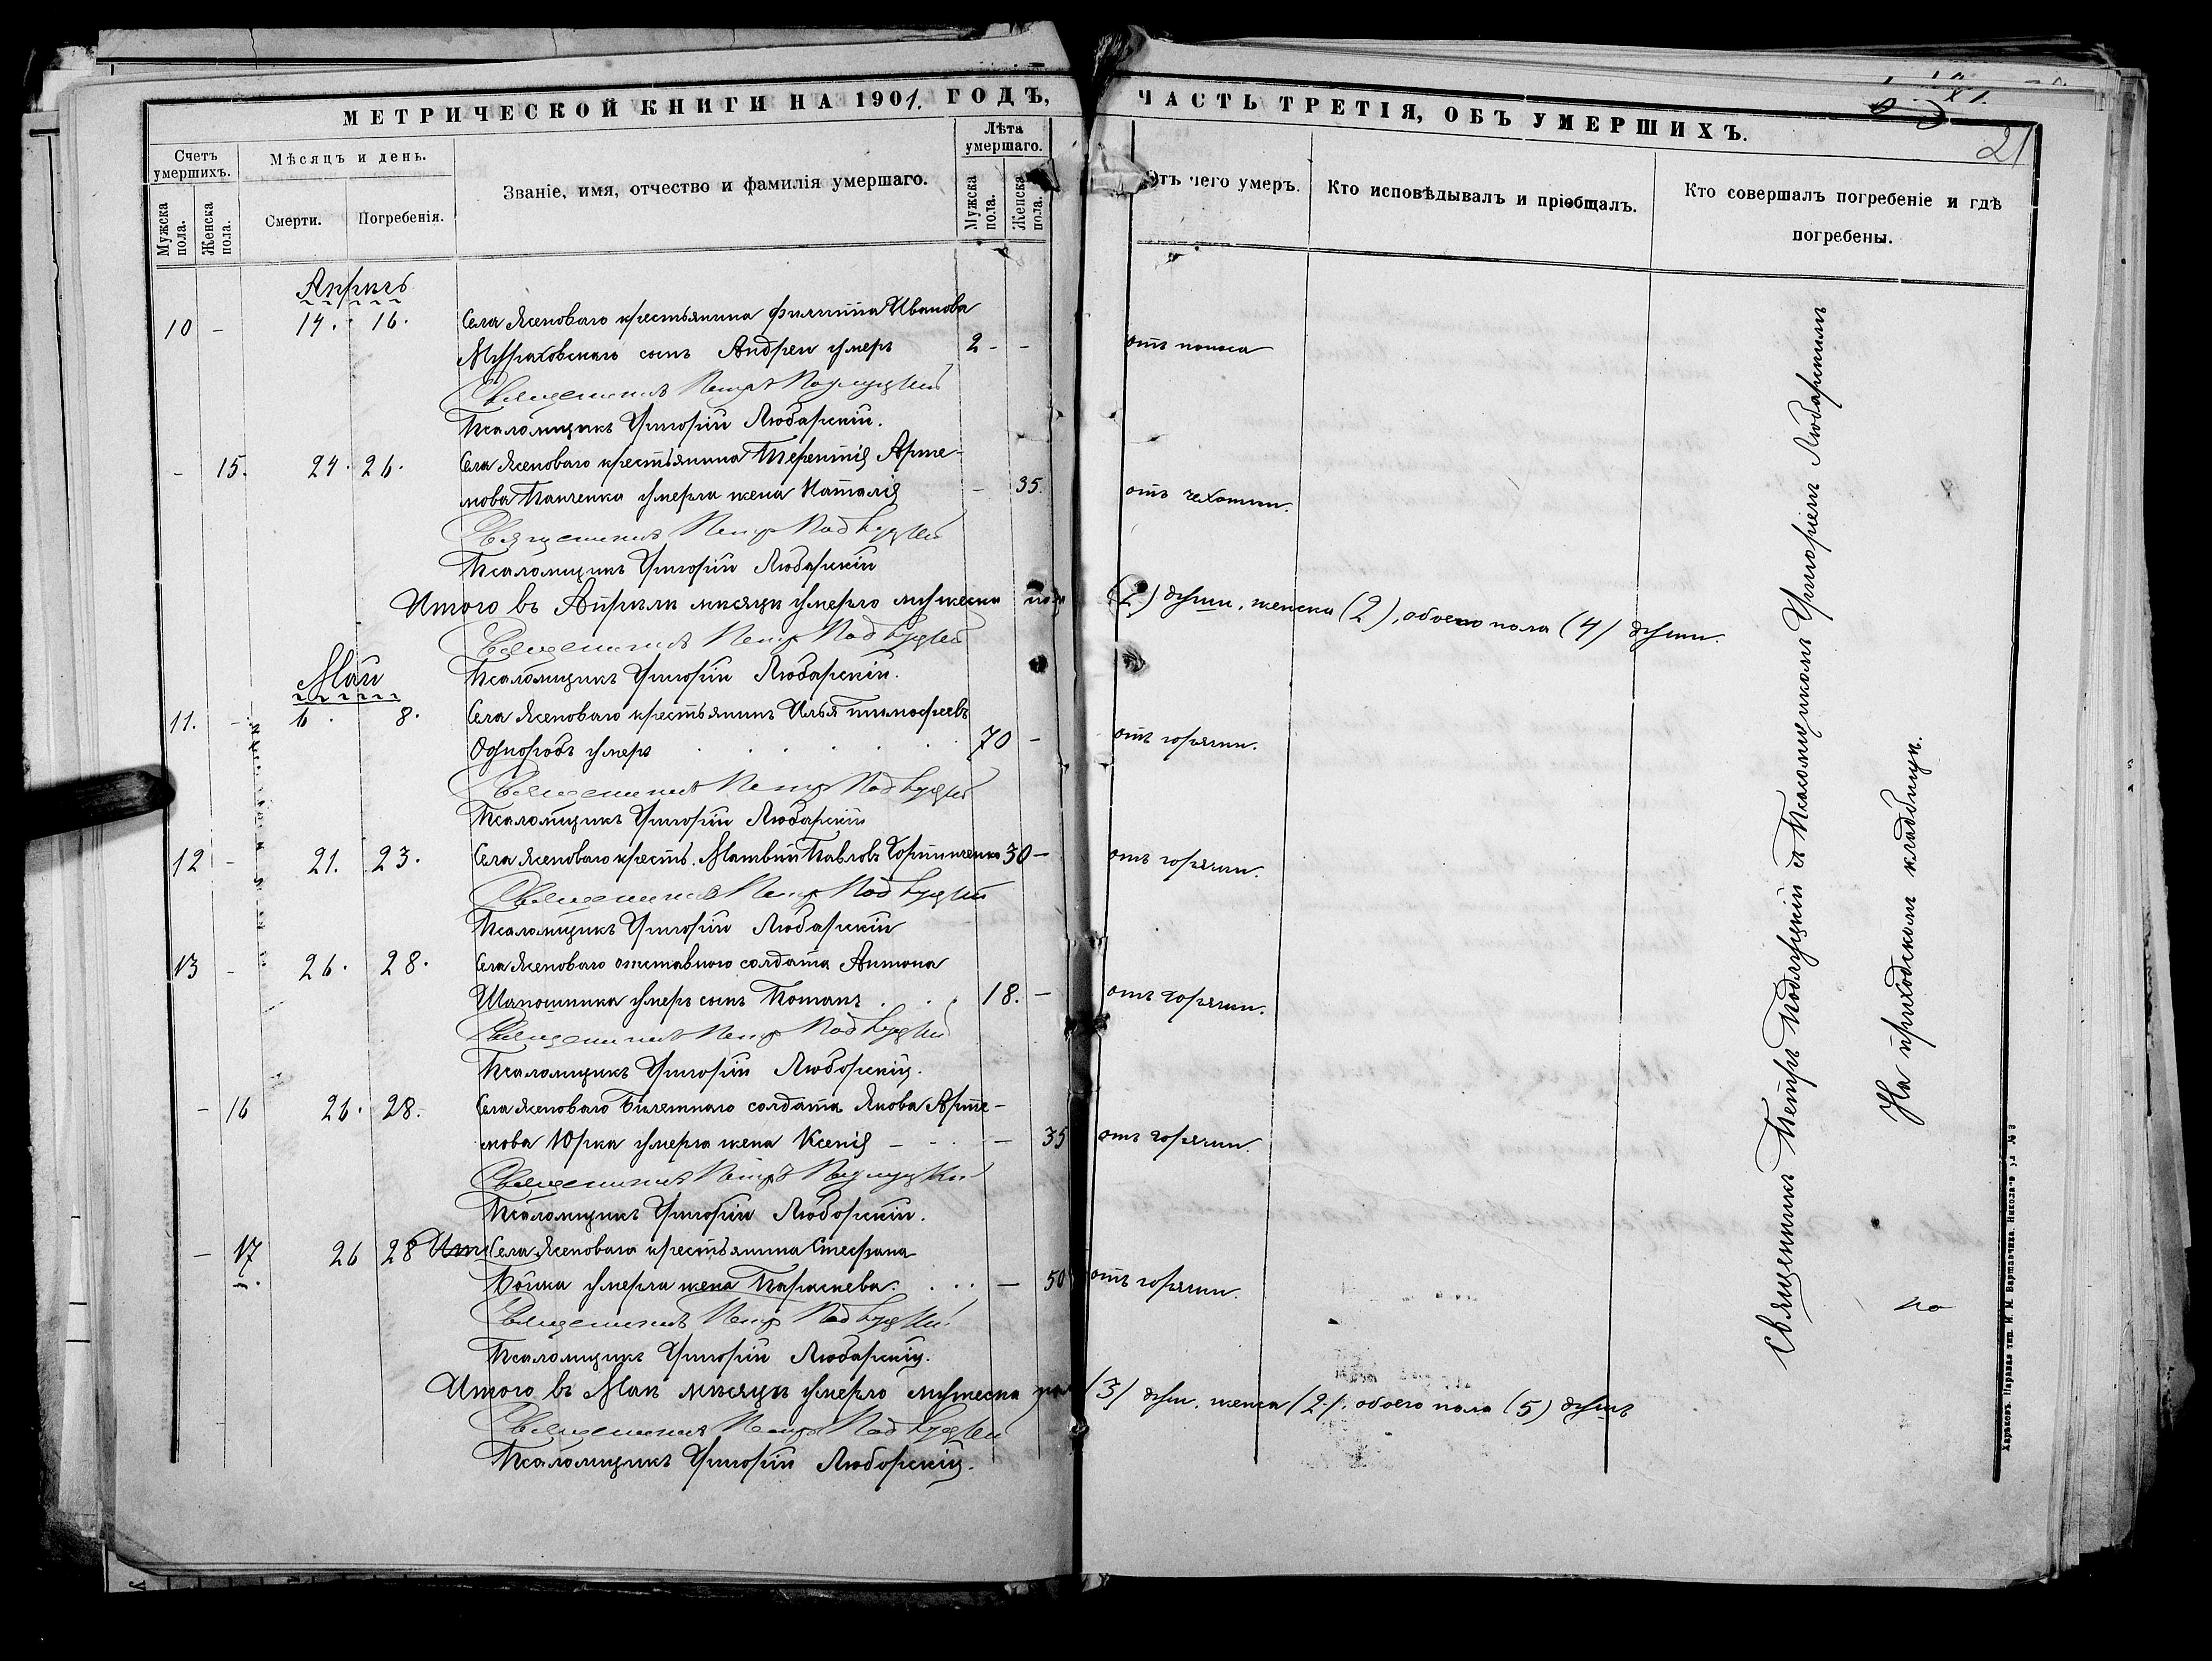 МЕТРИЧЕСКОЙ КНИГИ НА 1901. ГОДЪ,
ЧАСТЬ ТРЕТІЯ, ОБЪ УМЕРШИХЪ.
21
Счетъ умершихъ.
Мужска пола.
Женска пола.
Мѣсяцъ и день.
Смерти.
Погребенія.
Званіе, имя, отчество и фамилія умершаго.
Лѣта умершаго.
Мужска пола.
Женска пола.
Отъ чего умеръ.
Кто исповѣдывалъ и пріобщалъ.
Кто совершалъ погребеніе и гдѣ
погребены.
Апрѣль
10 - 14. 16. Села Ясеноваго крестьянина Филиппа Иванова
Мураховскаго сынъ Андрей умеръ 2 - - отъ поноса
Священникъ Петръ Подлуцкій
Псаломщикъ Григорій Любарскій.
- 15. 24. 26. Села Ясеноваго крестьянина Терентія Арте-
мова Панченка умерла жена Наталія - 35. отъ чахотки.
Священникъ Петръ Подлуцкій
Псаломщикъ Григорій Любарскій
Итого въ Апрѣлѣ мѣсяцѣ умерло мужеска пола (2) души, женска (2), обоего пола (4) души.
Священникъ Петръ Подлуцкій
Псаломщикъ Григорій Любарскій.
Май
11. - 6. 8. Села Ясеноваго крестьянинъ Илья Тимофеевъ
Однорогъ умеръ 70 - отъ горячки.
Священникъ Петръ Подлуцкій
Псаломщикъ Григорій Любарскій
12 - 21. 23. Села Ясеноваго кресть. Матвѣй Павловъ 30 - отъ горячки.
Священникъ Петръ Подлуцкій
Псаломщикъ Григорій Любарскій
13 - 26. 28. Села Ясеноваго отставного солдата Антона
Шапошника умеръ сынъ Потапъ . . . 18. - отъ горячки.
Священникъ Петръ Подлуцкій
Псаломщикъ Григорій Любарскій.
- 16 26. 28. Села Ясеноваго билетнаго солдата Якова Арте-
мова Юрка умерла жена Ксенія - - 35 отъ горячки.
Священникъ Петръ Подлуцкій
Псаломщикъ Григорій Любарскій.
- 17 26 28 Села Ясеноваго крестьянина Стефана
Бойка умерла жена Параскева. . . . - 50 отъ горячки.
Священникъ Петръ Подлуцкій
Псаломщикъ Григорій Любарскій.
Итого въ Маѣ мѣсяцѣ умерло мужеска пола (3) душ. женска (2), обоего пола (5) душъ
Священникъ Петръ Подлуцкій
Псаломщикъ Григорій Любарскій.
Священникъ Петръ Подлуцкій съ Псаломщикомъ Григоріемъ Любарскимъ
На приходскомъ кладбищѣ.
Харьковъ. Паровая тип. И. М. Варшавчика.